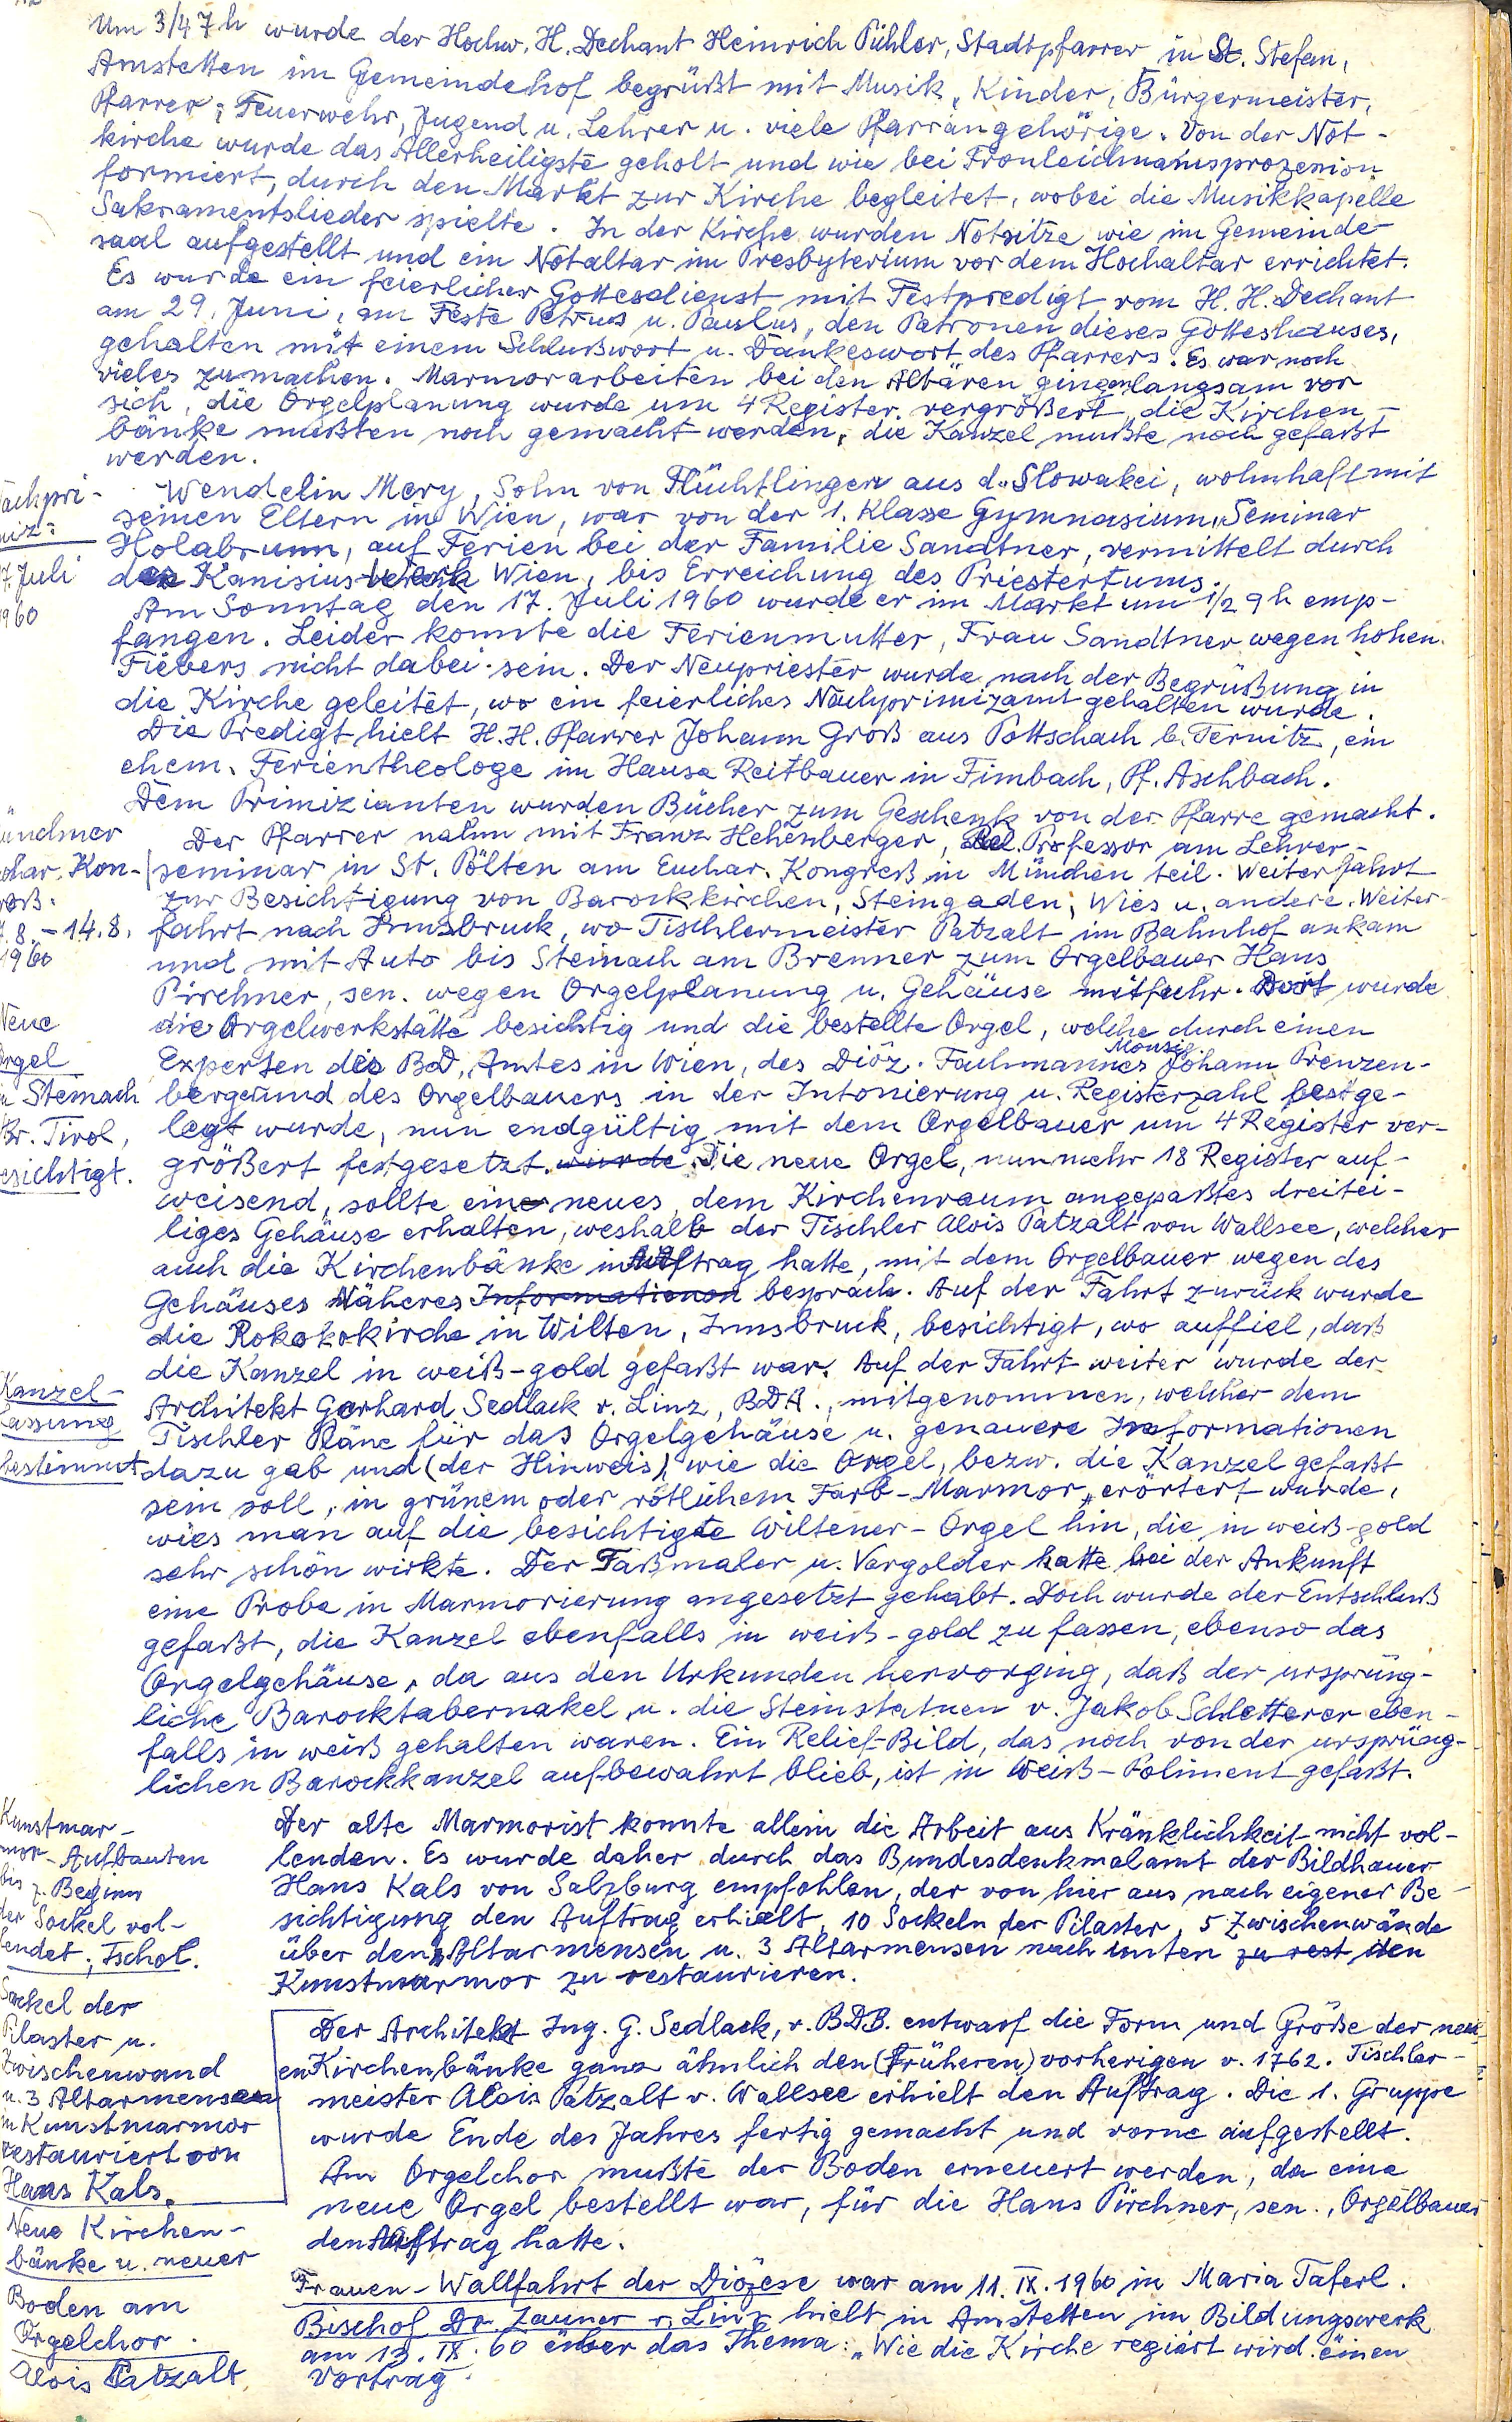 Um 3/4 7 h wurde der Hochw. H. Dechant Heinrich Pichler, Stadtpfarrer in St. Stefan,
Amstetten im Gemeindehof begrüßt mit Musik, Kinder, Bürgermeister,
Pfarrer, Feuerwehr, Jugend u. Lehrer u. viele Pfarrangehörige. Von der Not-
kirche wurde das Allerheiligste geholt und wie bei Fronleichnamsprozession
formiert, durch den Markt zur Kirche begleitet, wobei die Musikkapelle
Sakramentslieder spielte. In der Kirche wurden Notsitze wie im Gemeinde-
saal aufgestellt und ein Notaltar im Presbyterium vor dem Hochaltar errichtet.
Es wurde ein feierlicher Gottesdienst mit Festpredigt vom H. H. Dechant
am 29. Juni, am Feste Petrus u. Paulus, den Patronen dieses Gotteshauses,
gehalten mit einem Schlußwort u. Dankeswort des Pfarrers. Es war noch
vieles zu machen. Marmorarbeiten bei den Altären gingen langsam vor
sich, die Orgelplanung wurde um 4 Register vergrößert, die Kirchen-
bänke mußten noch gemacht werden, die Kanzel mußte noch gefaßt
werden.
achpri-
miz:
7. Juli
1960
Wendelin Mery, Sohn von Flüchtlingen aus d. Slowakei, wohnhaft mit
seinen Eltern in Wien, war von der 1. Klasse Gymnasium, Seminar
Holabrunn, auf Ferien bei der Familie Sandtner, vermittelt durch
das Kanisius-Werk Wien, bis Erreichung des Priestertums.
Am Sonntag den 17. Juli 1960 wurde er im Markt um 1/2 9 h emp-
fangen. Leider konnte die Ferienmutter, Frau Sandtner wegen hohen
Fiebers nicht dabei sein. Der Neupriester wurde nach der Begrüßung in
die Kirche geleitet, wo ein feierliches Nachprimizamt gehalten wurde.
Die Predigt hielt H. H. Pfarrer Johann Groß aus Pottschach b. Ternitz, ein
ehem. Ferientheologe im Hause Reitbauer in Fimbach, Pf. Aschbach.
Dem Primizianten wurden Bücher zum Geschenk von der Pfarre gemacht.
ünchner
char. Kon-
reß.
7.8. - 14.8.
1960
Der Pfarrer nahm mit Franz Hehenberger, Rel. Professor am Lehrer-
seminar in St. Pölten am Euchar. Kongreß in München teil. Weiterfahrt
zur Besichtigung von Barockkirchen, Steingaden, Wies u. andere. Weiter-
fahrt nach Innsbruck, wo Tischlermeister Patzalt im Bahnhof ankam
und mit Auto bis Steinach am Brenner zum Orgelbauer Hans
Pirchner, sen. wegen Orgelplanung u. Gehäuse mitfuhr. Dort wurde
Neue
Orgel
in Steinach
Br. Tirol,
esichtigt.
die Orgelwerkstätte besichtig und die bestellte Orgel, welche durch einen
Experten des BD. Amtes in Wien, des Diöz. Fachmannes Monsig. Johann Prenzen-
berger und des Orgelbauers in der Intonierung u. Registerzahl festge-
legt wurde, nun endgültig mit dem Orgelbauer um 4 Register ver-
größert festgesetzt. wurde. Die neue Orgel, nunmehr 18 Register auf-
weisend, sollte ein neues, dem Kirchenraum angepaßtes dreitei-
liges Gehäuse erhalten, weshalb der Tischler Alois Patzalt von Wallsee, welcher
auch die Kirchenbänke in Auftrag hatte, mit dem Orgelbauer wegen des
Gehäuses Näheres Informationen besprach. Auf der Fahrt zurück wurde
die Rokokokirche in Wilten, Innsbruck, besichtigt, wo auffiel, daß
die Kanzel in weiß-gold gefaßt war. Auf der Fahrt weiter wurde der
Kanzel-
fassung
bestimmt
Architekt Gerhard Sedlack v. Linz, BDA., mitgenommen, welcher dem
Tischler Pläne für das Orgelgehäuse u. genauere Informationen
dazu gab und (der Hinweis), wie die Orgel, bezw. die Kanzel gefaßt
sein soll, in grünem oder rötlichem Farb-Marmor, erörtert wurde,
wies man auf die besichtigte Wiltener-Orgel hin, die in weiß-gold
sehr schön wirkte. Der Faßmaler u. Vergolder hatte bei der Ankunft
eine Probe in Marmorierung angesetzt gehabt. Doch wurde der Entschluß
gefaßt, die Kanzel ebenfalls in weiß-gold zu fassen, ebenso das
Orgelgehäuse, da aus den Urkunden hervorging, daß der ursprüng-
liche Barocktabernakel u. die Steinstatuen v. Jakob Schletterer eben-
falls in weiß gehalten waren. Ein Relief-Bild, das noch von der ursprüng-
lichen Barockkanzel aufbewahrt blieb, ist in Weiß-Poliment gefaßt.
Kunstmar-
mor-Aufbauten
bis z. Beginn
der Sockel vol-
lendet; Tschol.
Der alte Marmorist konnte allein die Arbeit aus Kränklichkeit nicht vol-
lenden. Es wurde daher durch das Bundesdenkmalamt der Bildhauer
Hans Kals von Salzburg empfohlen, der von hier aus nach eigener Be-
sichtigung den Auftrag erhielt, 10 Sockeln der Pilaster, 5 Zwischenwände
über den Altarmensen u. 3 Altarmensen nach unten zu rest den
Kunstmarmor zu restaurieren.
Sockel der
Pilaster u.
Zwischenwand
u. 3 Altarmensen
in Kunstmarmor
restauriert von
Hans Kals.
Neue Kirchen-
bänke u. neuer
Boden am
Orgelchor.
Alois Patzalt
Der Architekt Ing. G. Sedlack, v. BDB. entwarf die Form und Größe der neu-
en Kirchenbänke ganz ähnlich den (früheren) vorherigen v. 1762. Tischler-
meister Alois Patzalt v. Wallsee erhielt den Auftrag. Die 1. Gruppe
wurde Ende des Jahres fertig gemacht und vorne aufgestellt.
Am Orgelchor mußte der Boden erneuert werden, da eine
neue Orgel bestellt war, für die Hans Pirchner, sen., Orgelbauer
den Auftrag hatte.
Frauen-Wallfahrt der Diözese war am 11. IX. 1960 in Maria Taferl.
Bischof Dr. Zauner v. Linz hielt in Amstetten im Bildungswerk
am 13. IX. 60 über das Thema: „Wie die Kirche regiert wird" einen
Vortrag.